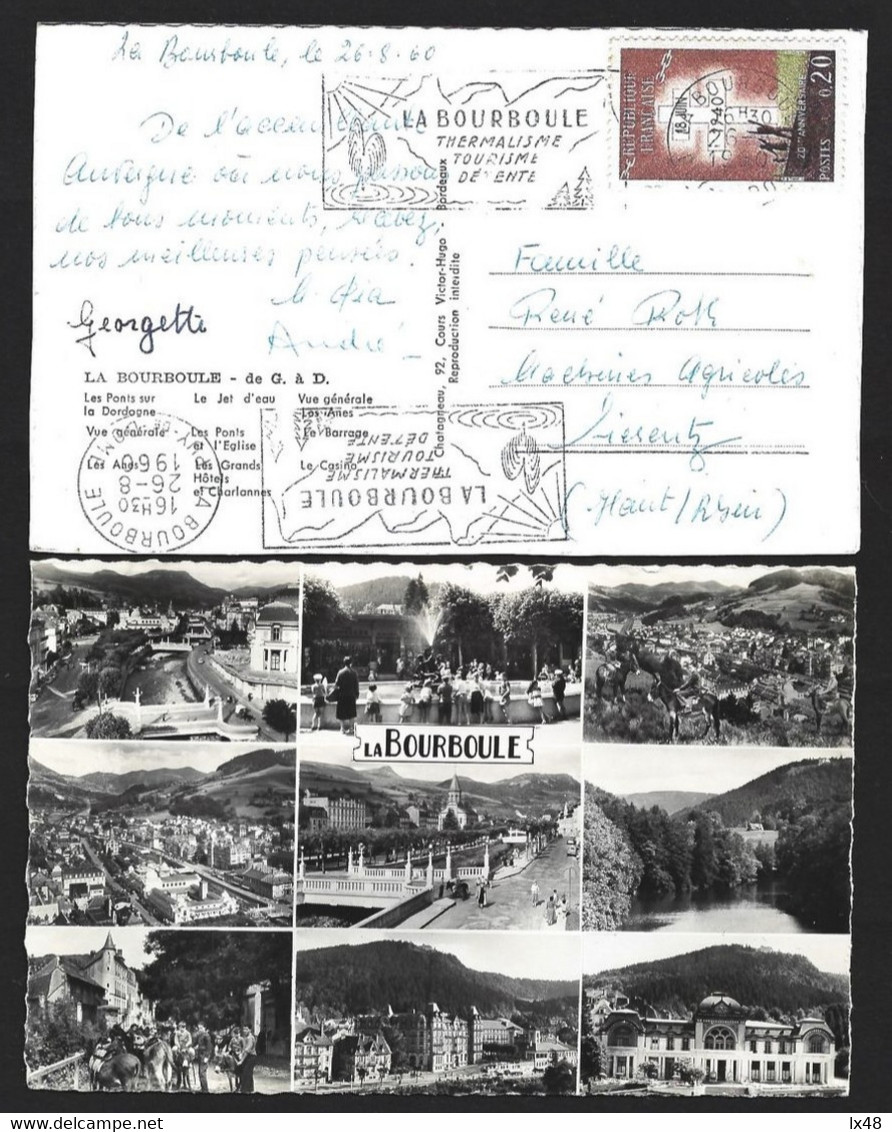 La Bourboule, le 26-8-60
De l'accueillante
Auvergne où nous passons
de bons moments, recevez,
nos meilleures pensées.
Georgette
André
LA BOURBOULE
THERMALISME
TOURISME
DÉTENTE
RÉPUBLIQUE
FRANÇAISE
18 JUIN
1940
20ème ANNIVERSAIRE
POSTES 0,20
Chatagneau, 92, Cours Victor-Hugo Bordeaux
Reproduction interdite
Famille
René Roth
Machines Agricoles
Sierentz
(Haut/Rhin)
LA BOURBOULE - de G. à D.
Les Ponts sur la Dordogne
Le Jet d'eau
Vue générale
Les Anes
Vue générale
Les Ponts et l'Eglise
Le Barrage
Les Anes
Les Grands Hôtels et Charlannes
Le Casino
LA BOURBOULE
PUY-DE-DÔME
16H30
26-8
1960
LA BOURBOULE
THERMALISME
TOURISME
DÉTENTE
LA BOURBOULE
lx48